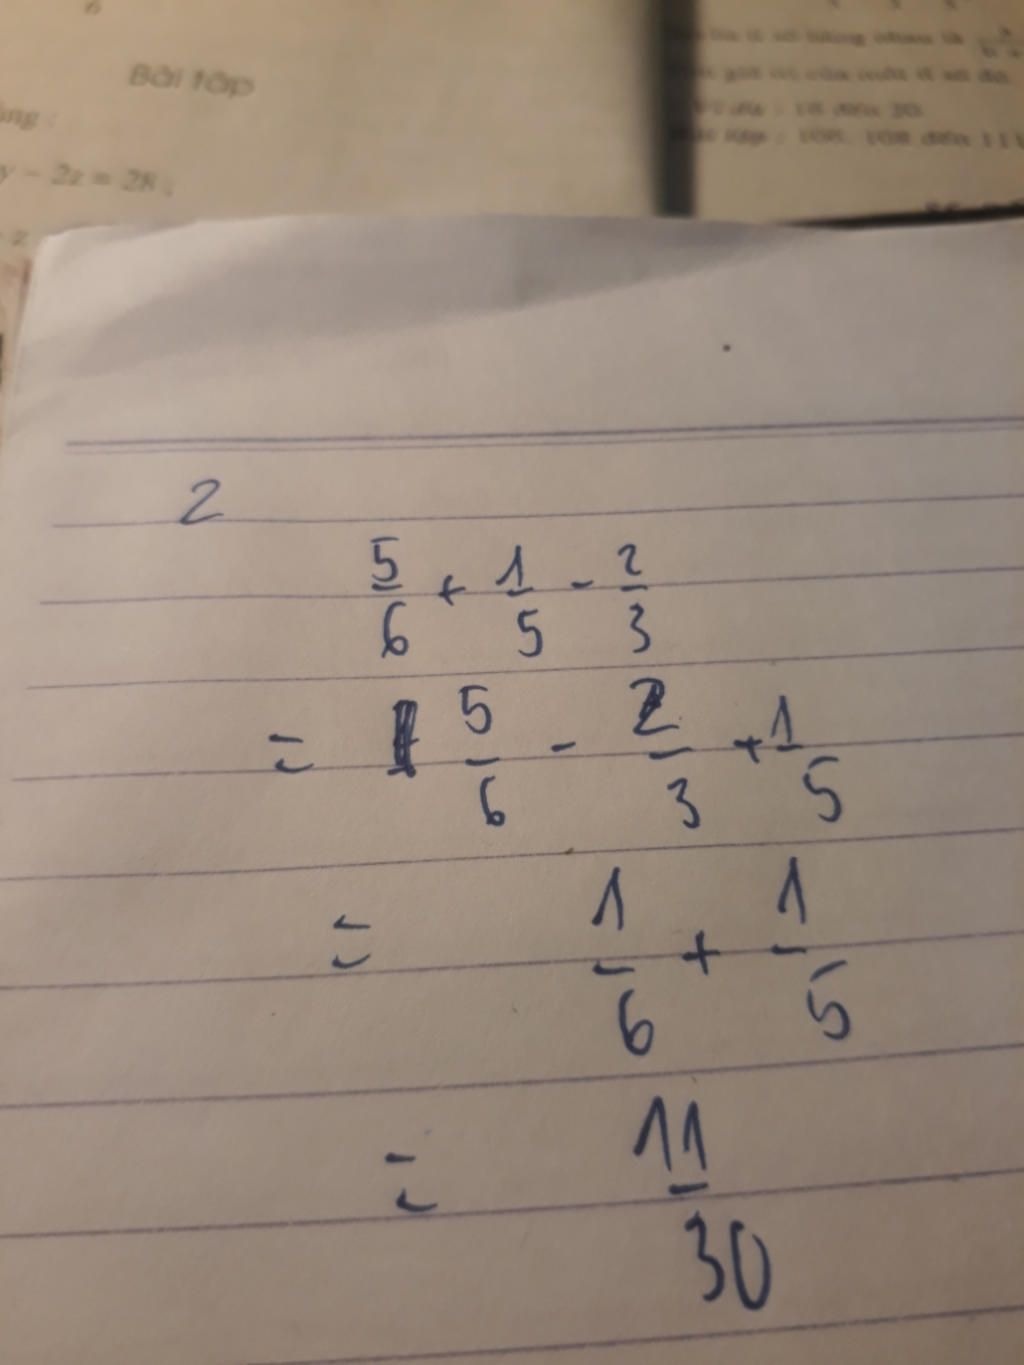 Bài tập
y - 2z = 28 ;
2
5/6 + 1/5 - 2/3
= 5/6 - 2/3 + 1/5
= 1/6 + 1/5
= 11/30